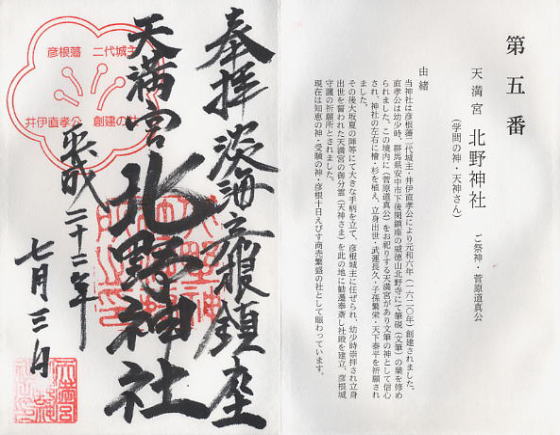 第五番
天満宮 北野神社 ご祭神・菅原道真公
(学問の神・天神さん)
由緒
当神社は彦根藩二代城主・井伊直孝公により元和六年(一六二〇年)創建されました。
直孝公は幼少時、群馬県安中市下後閑鎮座の威徳山北野寺にて筆硯(文筆)の業を修め
られました。この境内に(菅原道真公)をお祀りする天満宮があり文筆の神として信心
され、神社の左右に檜・杉を植え、立身出世・武運長久・子孫繁栄・天下泰平を祈願され
ました。
その後大坂夏の陣等にて大きな手柄を立て、彦根城主に任ぜられ、幼少時崇拝され立身
出世を誓われた天満宮の御分霊(天神さま)を此の地に勧遷奉斎し社殿を建立、彦根城
守護の祈願所とされました。
現在は知恵の神・受験の神・彦根十日えびす商売繁盛の社として賑わっています。
奉拝 淡海之彦根鎮座
天満宮 北野神社
平成二十二年
七月三日
彦根藩 二代城主
井伊直孝公 創建の社